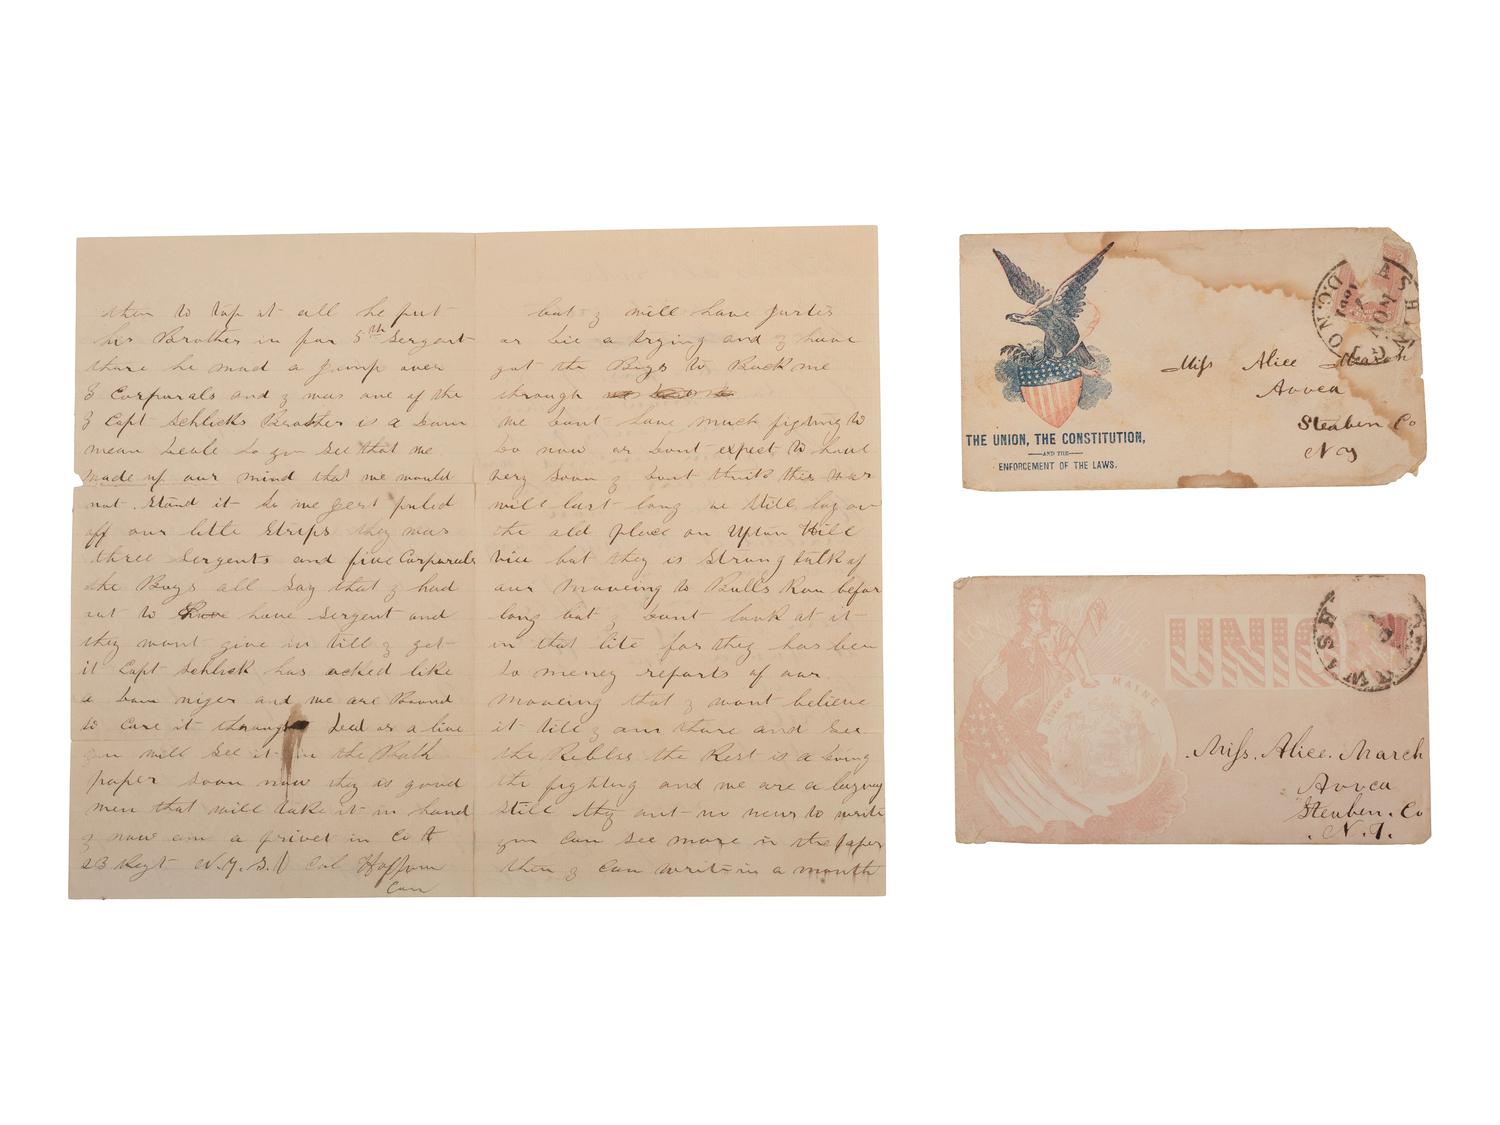 then to top it all he put
his Brother in for 5th Sergent
there he mad a jump over
3 Corpurals and I was one of the
3 Capt Schlicks Brother is a dam
mean Scale so you See that we
made up our mind that we would
not Stand it So we jest puled
off our litle Strips they was
three Sergents and five Corpurals
the Boys all Say that I had
aut to have have Sergent and
they wont give in till I get
it Capt Schlick has acked like
a dam niger and we are Bound
to Care it through Ded or alive
you will See it in the Bath
paper Soon now they is good
men that will take it in hand
I now am a privet in Co H
23 Regt N.Y.S.V Col Hoffman
Com
but I will have justis
or die a trying and I have
got the Boys to Back me
through
we dont have much fighting to
do now or dont expect to have
very Soon I dont think this War
will last long we Still lay on
the old place on Upton Hill
but they is Strong talk of
our Moveing to Bulls Run before
long but I dont look at it
in that lite for they has been
So meney reports of our
moveing that I wont believe
it till I am there and See
the Rebbles the Rest is a doing
the fighting and we are a laying
Still they ant no news to write
you can See more in the paper
then I can write in a month
THE UNION, THE CONSTITUTION,
AND THE
ENFORCEMENT OF THE LAWS.
WASHINGTON D.C.
NOV
Miss Alice March
Avoca
Steuben Co
N Y
UNION
State of MAINE
WASH
Miss. Alice. March
Avoca
Steuben. Co
N. Y.